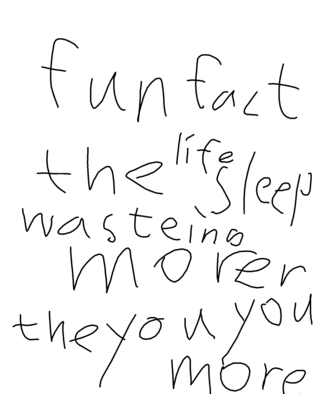 fun fact
the life sleep
wasteing
morer
the you you
more